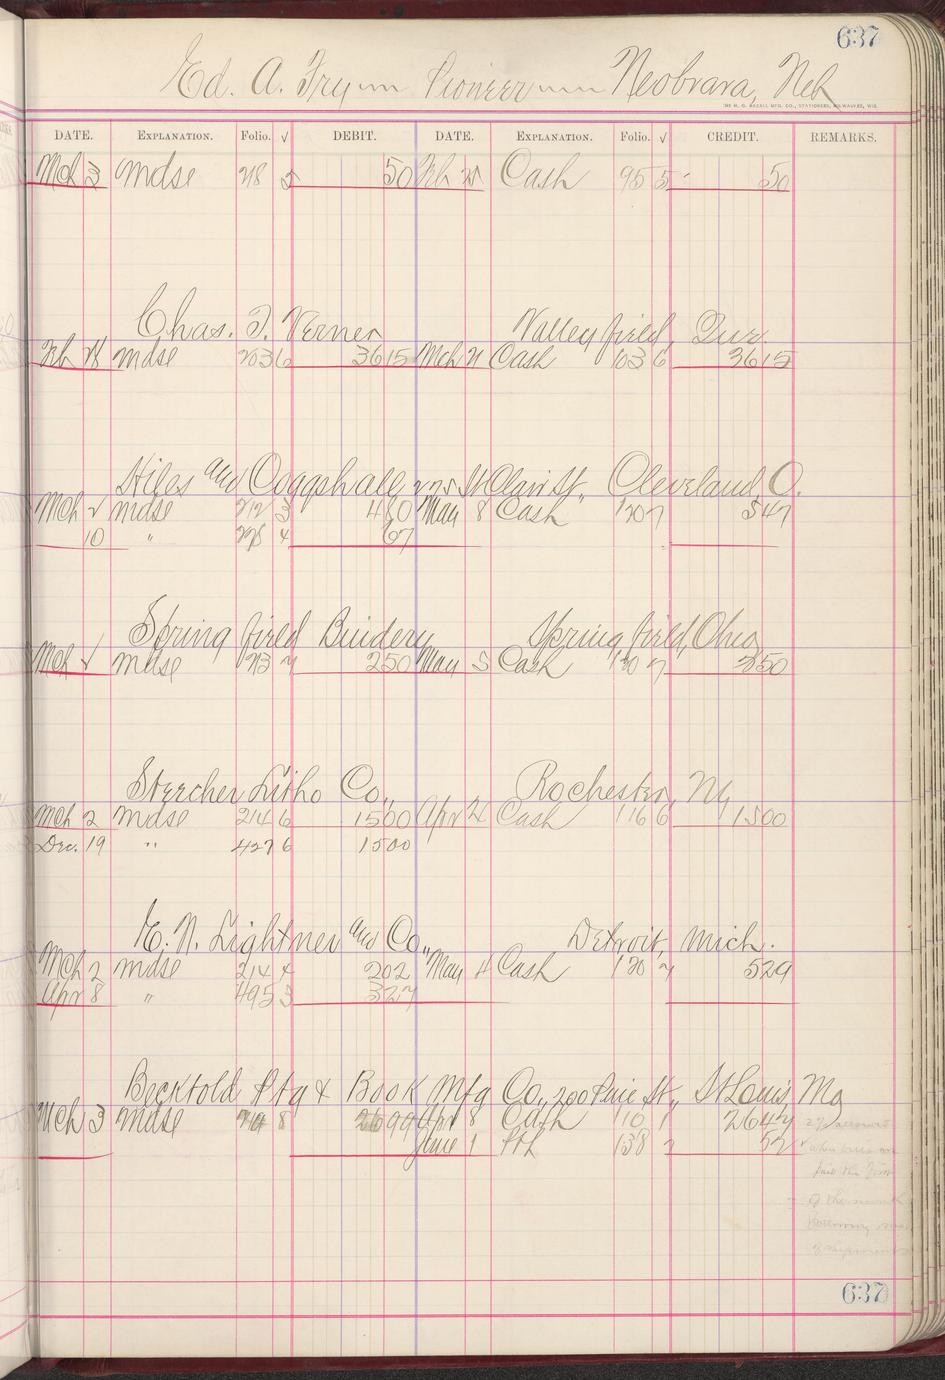 637
Ed. A. Fry Pioneer Neobrara, Neb
THE H. G. RAZALL MFG. CO., STATIONERS, MILWAUKEE, WIS.
DATE. EXPLANATION. Folio. √ DEBIT. DATE. EXPLANATION. Folio. √ CREDIT. REMARKS.
Mch 3 mdse 218 5 50 Feb 25 Cash 95 5 50
Chas. F. Verner Valleyfield, Que.
Feb 28 mdse 203 6 3615 Mch 21 Cash 103 6 3615
Hiles and Coggshall, 225 St Clair St., Cleveland, O.
Mch 2 mdse 212 3 480 May 8 Cash 120 7 547
10 " 228 4 67
Springfield Bindery Springfield, Ohio
Mch 2 mdse 213 7 250 May 5 Cash 120 7 250
Stercher Litho Co., Rochester, Ny
Mch 2 mdse 214 6 1500 Apr 24 Cash 116 6 1500
Dec. 19 " 427 6 1500
E. N. Lightner and Co., Detroit, Mich.
Mch 2 mdse 214 4 202 May 4 Cash 120 7 529
Apr 8 " 495 3 327
Becktold Ptg & Book Mfg Co., 200 Pine St., St Louis, Mo
Mch 3 mdse 8 2699 Apr 8 Cash 110 1 2647
June 1 138 7 52 when
paid the first
of the month
following
of shipment
637